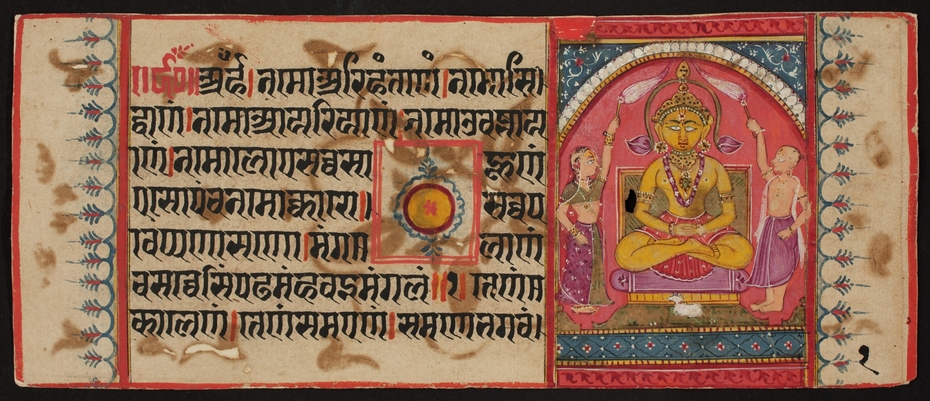 अर्हं। नमो अरिहंताणं। नमो सि।
द्धाणं। नमो आयरियाणं। नमो उवज्झाया
णं। नमो लोए सव्वसा हूणं
एसो पंच नमोक्कारो॥ सव्वपा
वप्पणासणो। मंग लाणं
च सव्वेसिं पढमं हवइ मंगलं॥१ तेणं
कालेणं। तेणं समएणं। समणे भगवं।
१